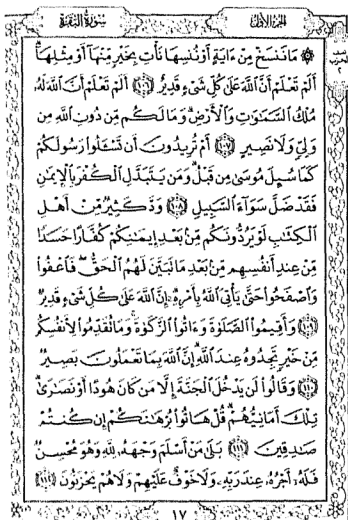 سُورَةُ البَقَرَةِ
الجُزْءُ الأَوَّلُ
۞ مَا نَنسَخْ مِنْ ءَايَةٍ أَوْ نُنسِهَا نَأْتِ بِخَيْرٍ مِّنْهَآ أَوْ مِثْلِهَآ
أَلَمْ تَعْلَمْ أَنَّ ٱللَّهَ عَلَىٰ كُلِّ شَىْءٍ قَدِيرٌ ١٠٦ أَلَمْ تَعْلَمْ أَنَّ ٱللَّهَ لَهُۥ
مُلْكُ ٱلسَّمَٰوَٰتِ وَٱلْأَرْضِ وَمَا لَكُم مِّن دُونِ ٱللَّهِ مِن
وَلِىٍّ وَلَا نَصِيرٍ ١٠٧ أَمْ تُرِيدُونَ أَن تَسْـَٔلُوا۟ رَسُولَكُمْ
كَمَا سُئِلَ مُوسَىٰ مِن قَبْلُ وَمَن يَتَبَدَّلِ ٱلْكُفْرَ بِٱلْإِيمَٰنِ
فَقَدْ ضَلَّ سَوَآءَ ٱلسَّبِيلِ ١٠٨ وَدَّ كَثِيرٌ مِّنْ أَهْلِ
ٱلْكِتَٰبِ لَوْ يَرُدُّونَكُم مِّنۢ بَعْدِ إِيمَٰنِكُمْ كُفَّارًا حَسَدًا
مِّنْ عِندِ أَنفُسِهِم مِّنۢ بَعْدِ مَا تَبَيَّنَ لَهُمُ ٱلْحَقُّ فَٱعْفُوا۟
وَٱصْفَحُوا۟ حَتَّىٰ يَأْتِىَ ٱللَّهُ بِأَمْرِهِۦٓ إِنَّ ٱللَّهَ عَلَىٰ كُلِّ شَىْءٍ قَدِيرٌ
١٠٩ وَأَقِيمُوا۟ ٱلصَّلَوٰةَ وَءَاتُوا۟ ٱلزَّكَوٰةَ وَمَا تُقَدِّمُوا۟ لِأَنفُسِكُم
مِّنْ خَيْرٍ تَجِدُوهُ عِندَ ٱللَّهِ إِنَّ ٱللَّهَ بِمَا تَعْمَلُونَ بَصِيرٌ
١١٠ وَقَالُوا۟ لَن يَدْخُلَ ٱلْجَنَّةَ إِلَّا مَن كَانَ هُودًا أَوْ نَصَٰرَىٰ
تِلْكَ أَمَانِيُّهُمْ قُلْ هَاتُوا۟ بُرْهَٰنَكُمْ إِن كُنتُمْ
صَٰدِقِينَ ١١١ بَلَىٰ مَنْ أَسْلَمَ وَجْهَهُۥ لِلَّهِ وَهُوَ مُحْسِنٌ
فَلَهُۥٓ أَجْرُهُۥ عِندَ رَبِّهِۦ وَلَا خَوْفٌ عَلَيْهِمْ وَلَا هُمْ يَحْزَنُونَ ١١٢
١٧